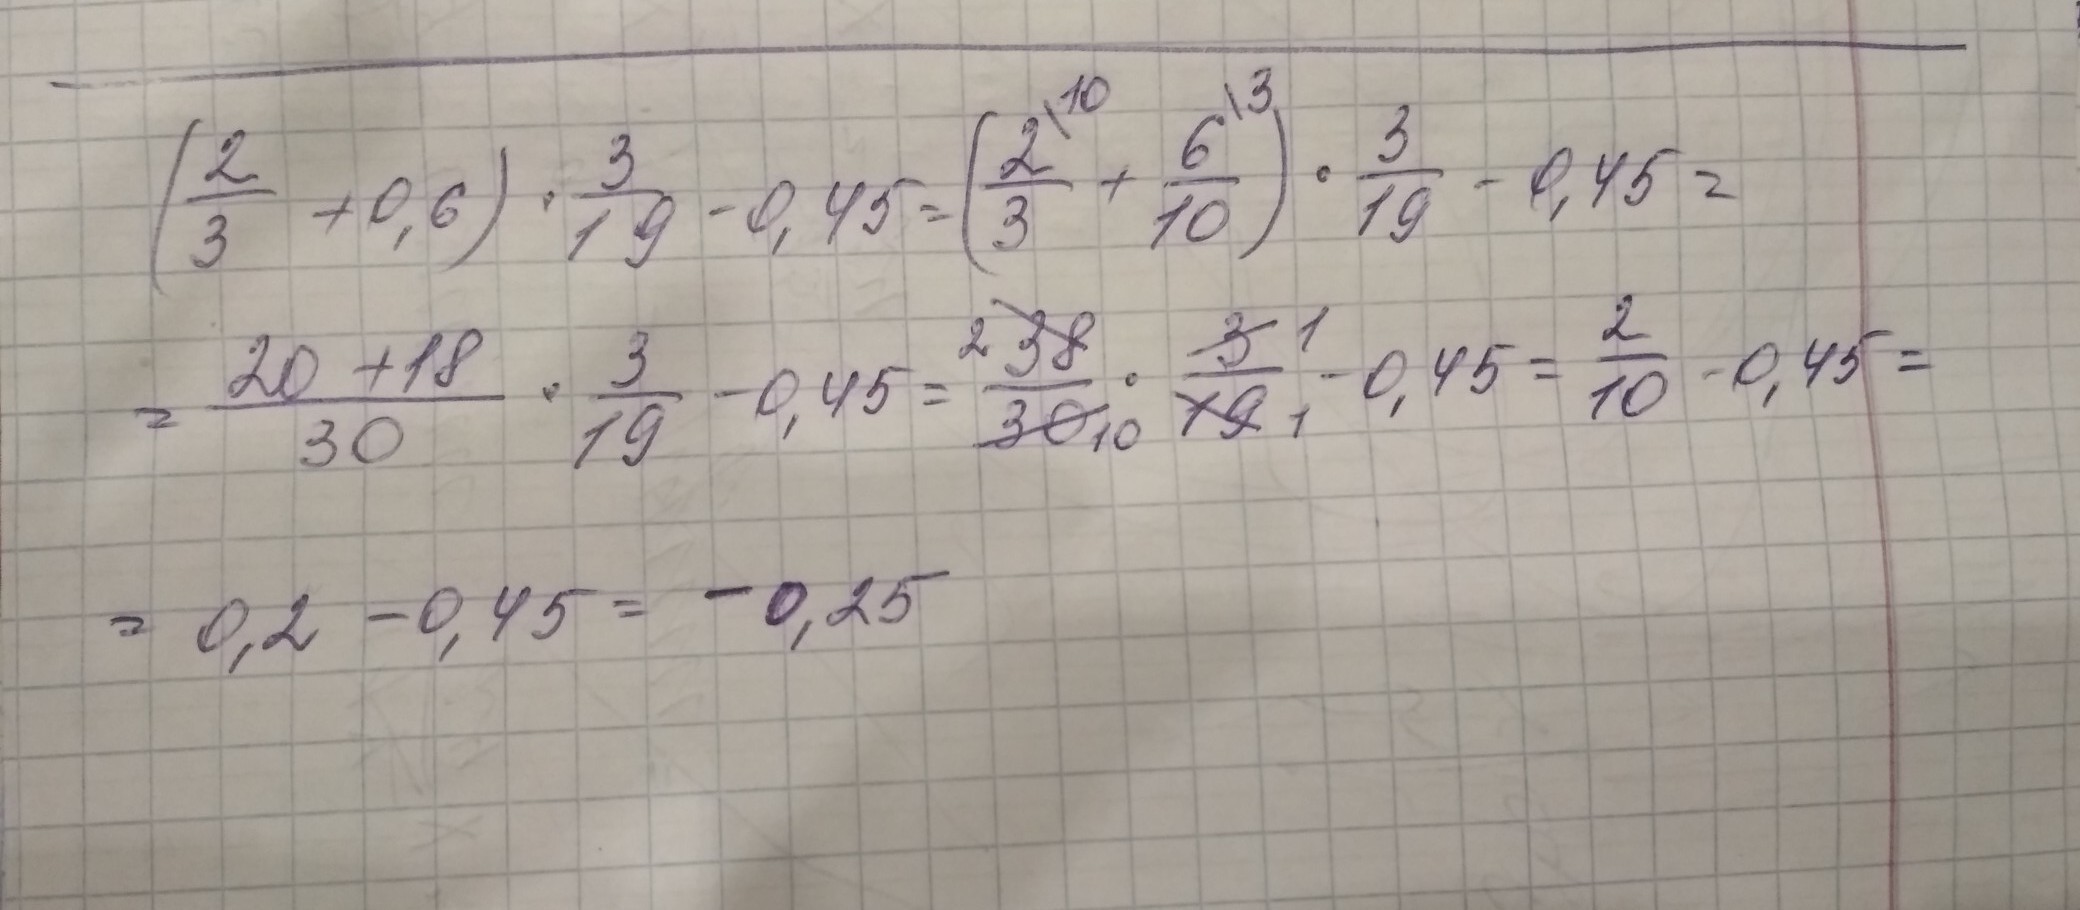 (2/3 + 0,6) · 3/19 - 0,45 = (2\10/3 + 6\3/10) · 3/19 - 0,45 =
= 20 + 18/30 · 3/19 - 0,45 = 2 38/30 10 · 3 1/19 1 - 0,45 = 2/10 - 0,45 =
= 0,2 - 0,45 = - 0,25